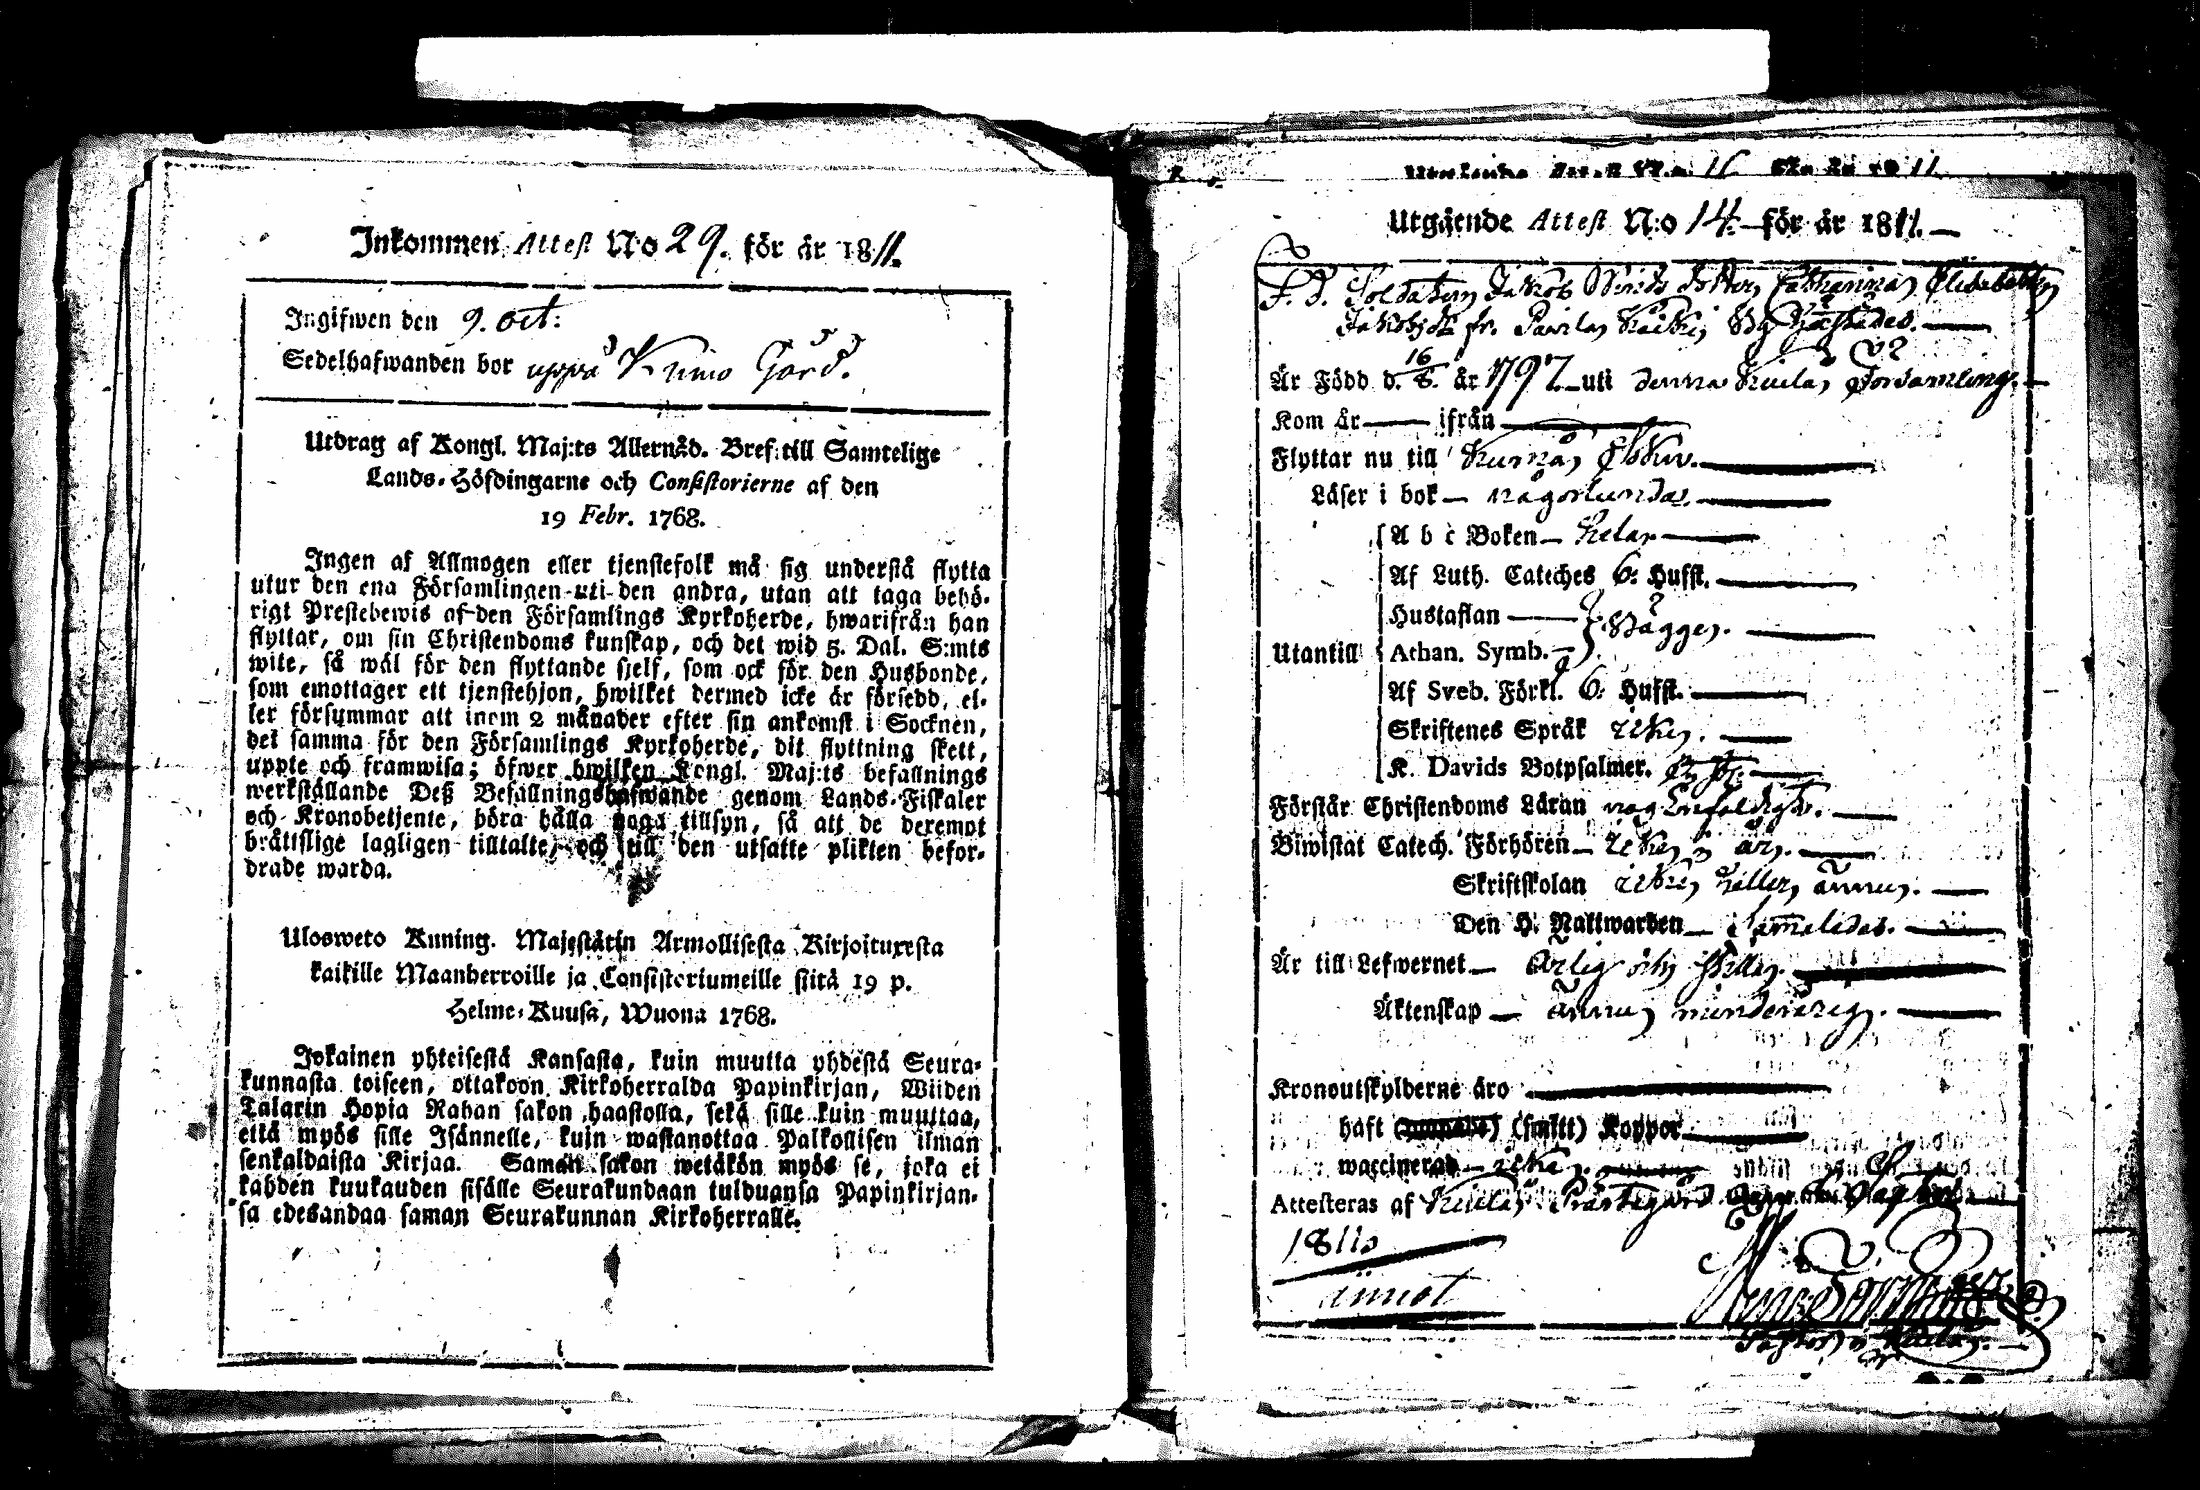 Inkommen Attest N:o 29. för år 1811.
Ingifwen den 9. oct:
Sedelhafwanden bor uppå Kumo Gård.
Utdrag af Kongl. Maj:ts Allernåd. Bref till Samtelige
Lands-Höfdingarne och Consistorierne af den
19 Febr. 1768.
Ingen af Allmogen eller tjenstefolk må sig understå flytta
utur den ena Församlingen uti den andra, utan att taga behö-
rigt Prestebewis af den Församlings Kyrkoherde, hwarifrån han
flyttar, om sin Christendoms kunskap, och det wid 5. Dal. S:mts
wite, så wäl för den flyttande sjelf, som ock för den Husbonde,
som emottager ett tjenstehjon, hwilket dermed icke är försedd, el-
ler försummar att inom 2 månader efter sin ankomst i Socknen,
det samma för den Församlings Kyrkoherde, dit flyttning skett,
uppte och framwisa; öfwer hwilken Kongl. Maj:ts befallnings
werkställande Deß Befallningshafwande genom Lands-Fiskaler
och Kronobetjente, böra hålla noga tillsyn, så att de deremot
bråttslige lagligen tilltalte, och till den utsatte plikten befor-
drade warda.
Ulosweto Kuning. Majestätin Armollisesta Kirjoituxesta
kaikille Maanherroille ja Consistoriumeille siitä 19 p.
Helme-Kuusa, Wuona 1768.
Jokainen yhteisestä Kansasta, kuin muutta yhdestä Seura-
kunnasta toiseen, ottakoon Kirkoherralda Papinkirjan, Wiiden
Talarin Hopia Rahan sakon haastolla, sekä sille kuin muuttaa,
että myös sille Isännelle, kuin wastanottaa Palkollisen ilman
senkaldaista Kirjaa. Saman sakon wetäkön myös se, joka ei
kahden kuukauden sisälle Seurakundaan tulduansa Papinkirjan-
sa edesandaa saman Seurakunnan Kirkoherralle.
Utgående Attest N:o 16 för år 1811
Utgående Attest N:o 14. för år 1811.
F. d. Soldaten Jakob dotter Catharina Elisabeth
Jakobsdr fr. By
Är Född d. 16/8. år 1797. uti denna Kiula Församling.
Kom år ifrån
Flyttar nu till Kumo
Läser i bok någorlunda.
A b c Boken hela
Af Luth. Cateches 6: Hufst.
Hustaflan Bägge.
Utantill Athan. Symb.
Af Sveb. Förkl. 6: Hufst.
Skriftenes Språk icke.
K. Davids Botpsalmer.
Förstår Christendoms Läran nog Enfaldigt.
Biwistat Catech. Förhören icke i år.
Skriftskolan icke heller ännu.
Den H. Nattwarden Sammaledes.
Är till Lefwernet Ärlig och stilla.
Äktenskap ännu minderårig.
Kronoutskylderne äro
haft (smått) Koppor
waccinerad icke.
Attesteras af Kiula Prästegård
1811.
Pastor i Kiula.